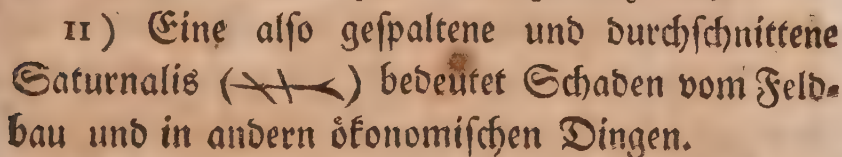 11) Eine alſo geſpaltene und durchſchnittene
Saturnalis () bedeutet Schaden vom Feld-
bau und in andern ökonomiſchen Dingen.